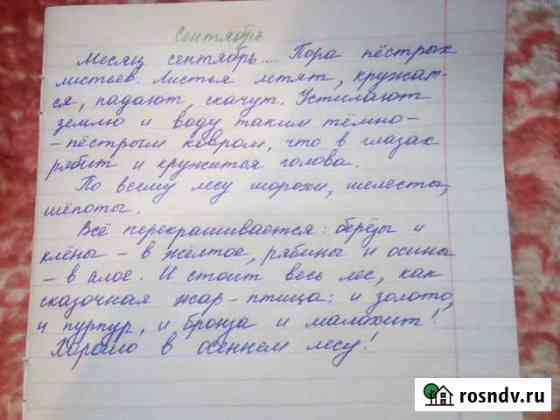 Сентябрь
Месяц сентябрь... Пора пёстрых
листьев. Листья летят, кружат-
ся, падают, скачут. Устилают
землю и воду таким тёмно-
-пёстрым ковром, что в глазах
рябит и кружится голова.
По всему лесу шорохи, шелесты,
шёпоты.
Всё перекрашивается: берёзы и
клёны - в жёлтое, рябины и осины
- в алое. И стоит весь лес, как
сказочная жар-птица: и золото,
и пурпур, и бронза и малахит!
Хорошо в осеннем лесу!
rosndv.ru